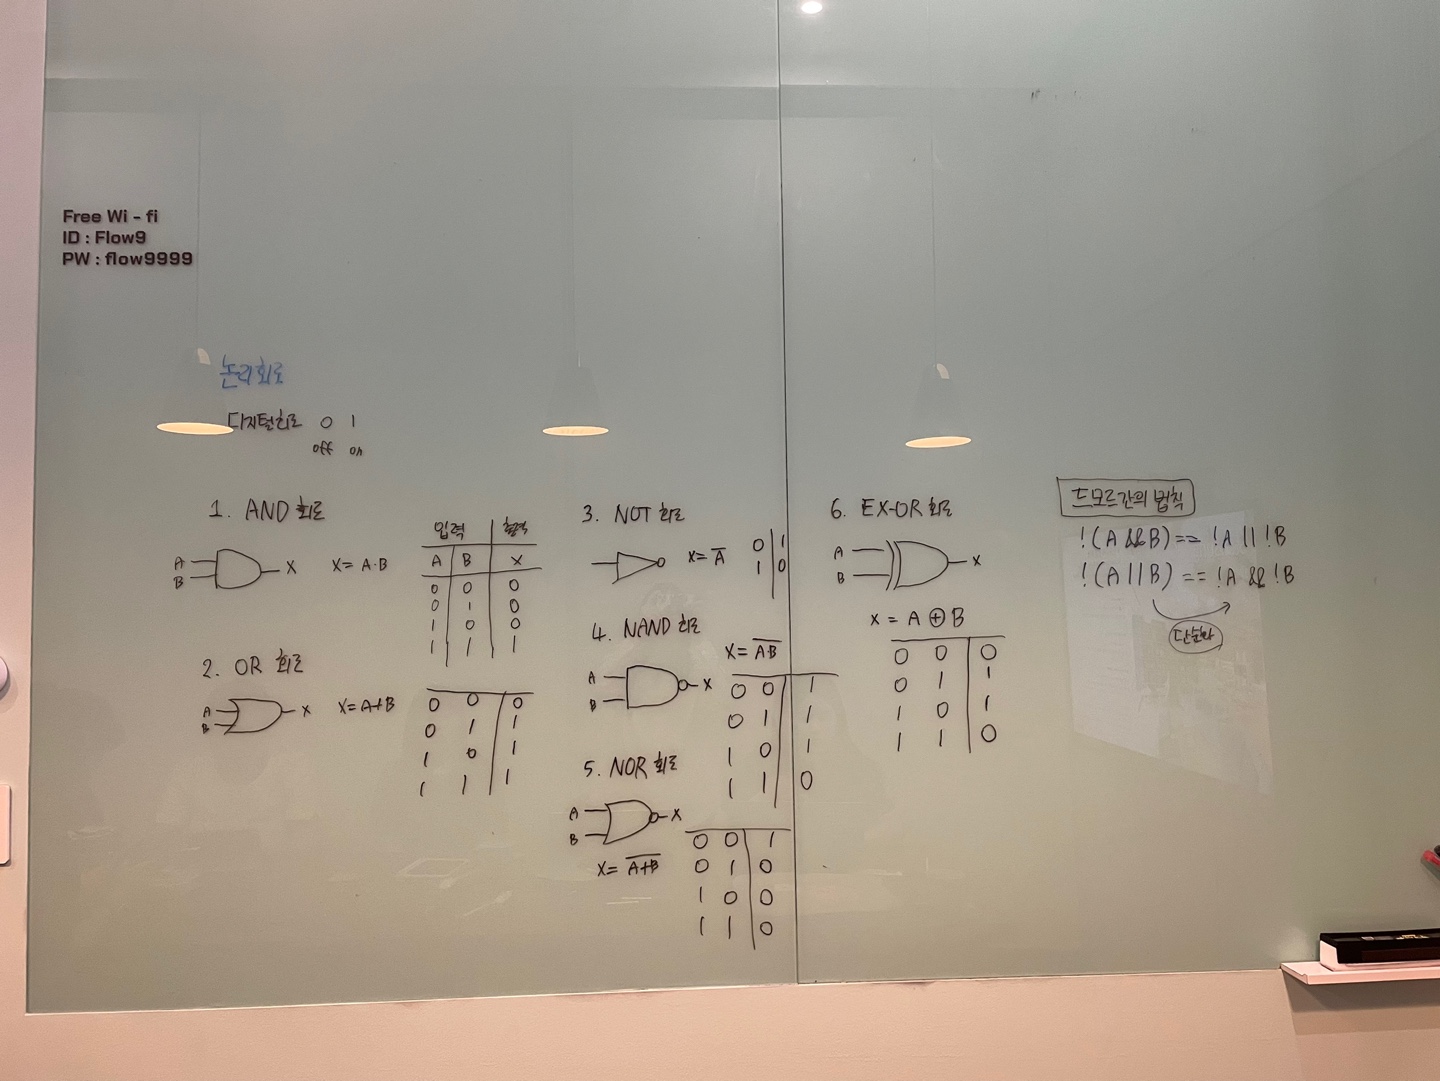 Free Wi-fi
ID : Flow9
PW : flow9999
논리회로
디지털회로 0 1
off on
1. AND 회로
A
B
X
X = A·B
입력 출력
A B X
0 0 0
0 1 0
1 0 0
1 1 1
2. OR 회로
A
B
X
X = A+B
0 0 0
0 1 1
1 0 1
1 1 1
3. NOT 회로
X = A̅
0 1
1 0
4. NAND 회로
A
B
X
X = A̅·̅B̅
0 0 1
0 1 1
1 0 1
1 1 0
5. NOR 회로
A
B
X
X = A̅+̅B̅
0 0 1
0 1 0
1 0 0
1 1 0
6. EX-OR 회로
A
B
X
X = A ⊕ B
0 0 0
0 1 1
1 0 1
1 1 0
드모르간의 법칙
!(A && B) == !A || !B
!(A || B) == !A && !B
단순화